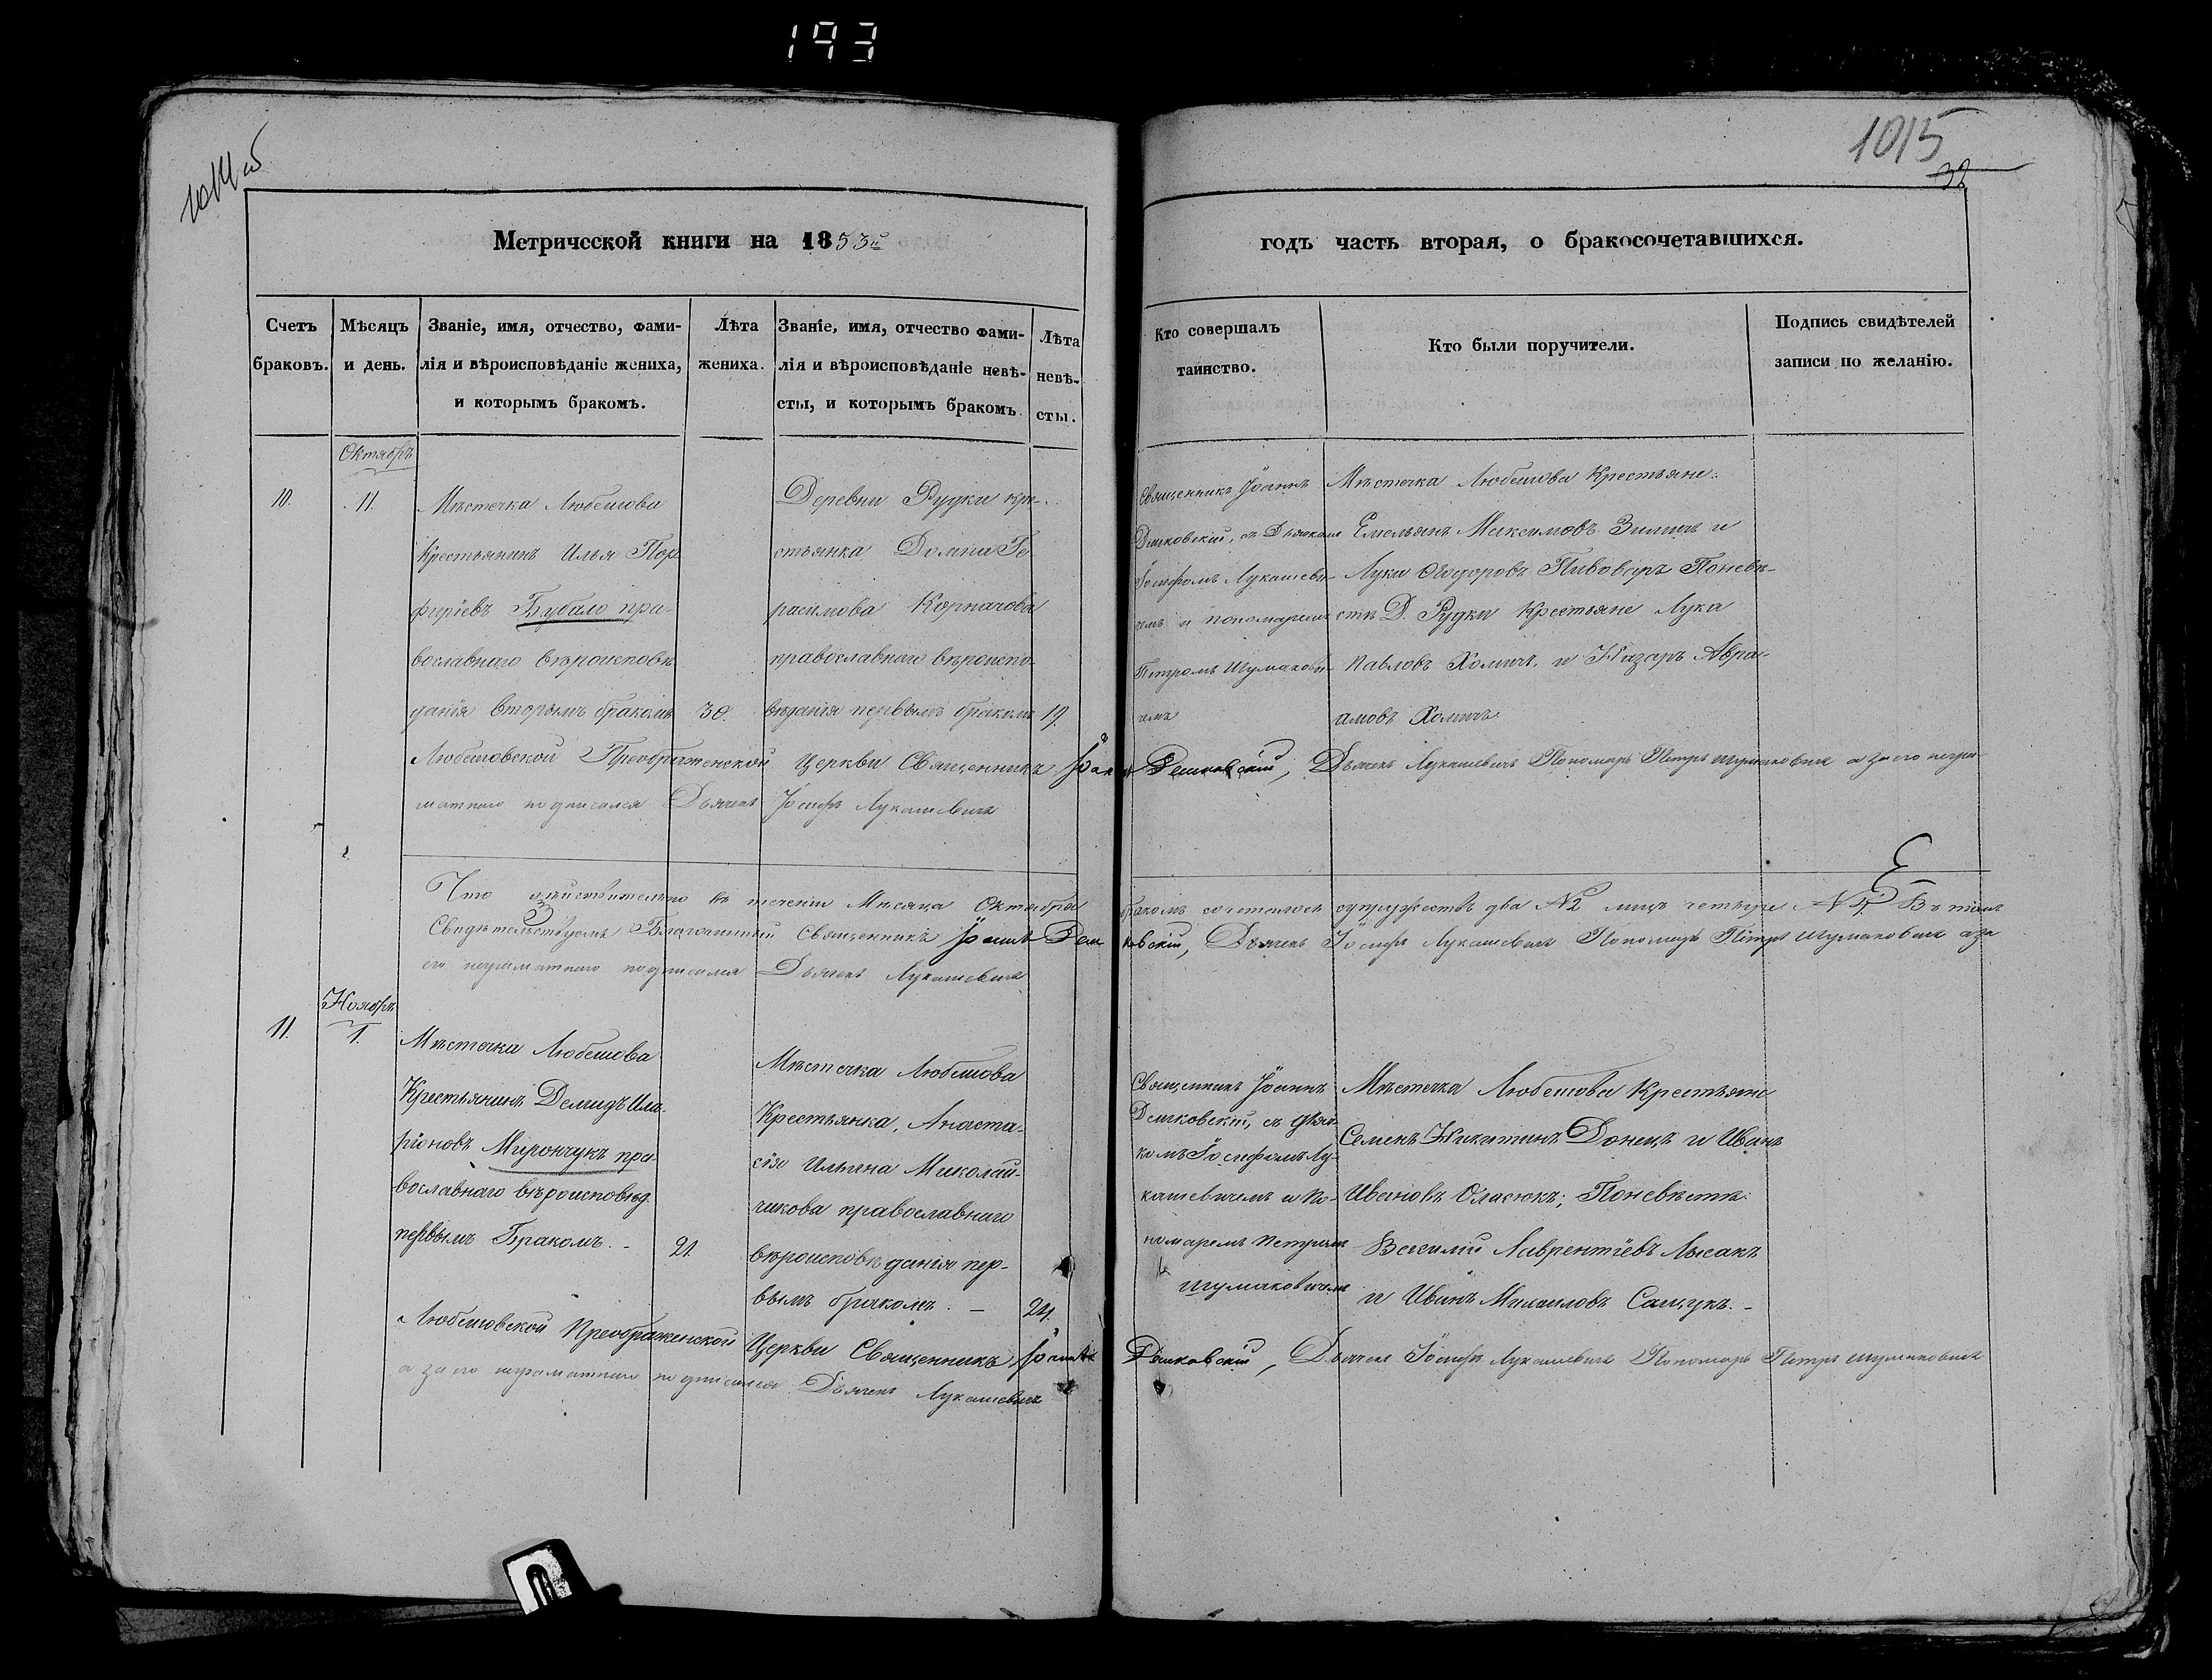 193
1015
32
Метрической книги на 1853й
годъ часть вторая, о бракосочетавшихся.
Счетъ браковъ.
Мѣсяцъ и день.
Званіе, имя, отчество, фами-
лія и вѣроисповѣданіе жениха,
и которымъ бракомъ.
Лѣта
жениха.
Званіе, имя, отчество фами-
лія и вѣроисповѣданіе невѣ-
сты, и которымъ бракомъ.
Лѣта
невѣ-
сты.
Кто совершалъ
таинство.
Кто были поручители.
Подпись свидѣтелей
записи по желанію.
Октябрь
10.
11.
Мѣстечка Любешова
Крестьянинъ Илья Пор
фиріевъ Бубало пра-
вославнаго вѣроисповѣ
данія вторымъ бракомъ
30.
Деревни Рудки кре-
стьянка Домна Ге-
расимова Корначова
православнаго вѣроиспо-
вѣданія первымъ бракомъ
19.
Священникъ Іоаннъ
Демковскій, съ Дьячкомъ
Іосифомъ Лукашеви-
чемъ и пономаремъ
Петромъ Шумакови-
чемъ
Мѣстечка Любешова Крестьяне:
Емельянъ Максимовъ Зиничъ и
Лука Ѳедоровъ Пивоваръ Поневѣ-
стѣ Д. Рудки Крестьяне Лука
Павловъ Хомичъ, и Назаръ Авра-
амовъ Хомичъ.
Любешовской Преображенской Церкви Священникъ Іоаннъ Демковскій, Дьячекъ Лукашевичъ Пономарь Петръ Шумаковичъ а за его негра
матнаго подписался Дьячекъ Іосифъ Лукашевичъ
Что дѣйствительно въ теченіи Мѣсяца Октября бракомъ сочеталось супружествъ два №2 лицъ четыре №4. Въ томъ
Свидѣтельствуемъ Священникъ Іоаннъ Демковскій, Дьячекъ Іосифъ Лукашевичъ Пономарь Петръ Шумаковичъ а за
его неграматнаго подписался Дьячекъ Лукашевичъ
Ноябрь
11.
1.
Мѣстечка Любешова
Крестьянинъ Демидъ Ила-
ріоновъ Мирончукъ пра-
вославнаго вѣроисповѣд.
первымъ Бракомъ. -
21.
Мѣстечка Любешова
Крестьянка, Анаста-
сія Ильина Миколай-
чикова православнаго
вѣроисповѣданія пер-
вымъ бракомъ. -
24.
Священникъ Іоаннъ
Демковскій, съ дьяч-
комъ Іосифомъ Лу-
кашевичемъ и По-
номаремъ Петромъ
Шумаковичемъ
Мѣстечка Любешова Крестьяне
Семенъ Никитинъ Донецъ и Иванъ
Ивановъ Оласюкъ; Поневѣстѣ:
Василій Лаврентіевъ Лысакъ
и Иванъ Михаиловъ Сащукъ. -
Любешовской Преображенской Церкви Священникъ Іоаннъ Демковскій, Дьячекъ Іосифъ Лукашевичъ Пономарь Петръ Шумаковичъ
а за его неграматнаго подписался Дьячекъ Лукашевичъ